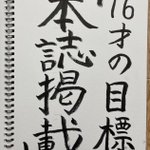 76才の目標
本誌掲載